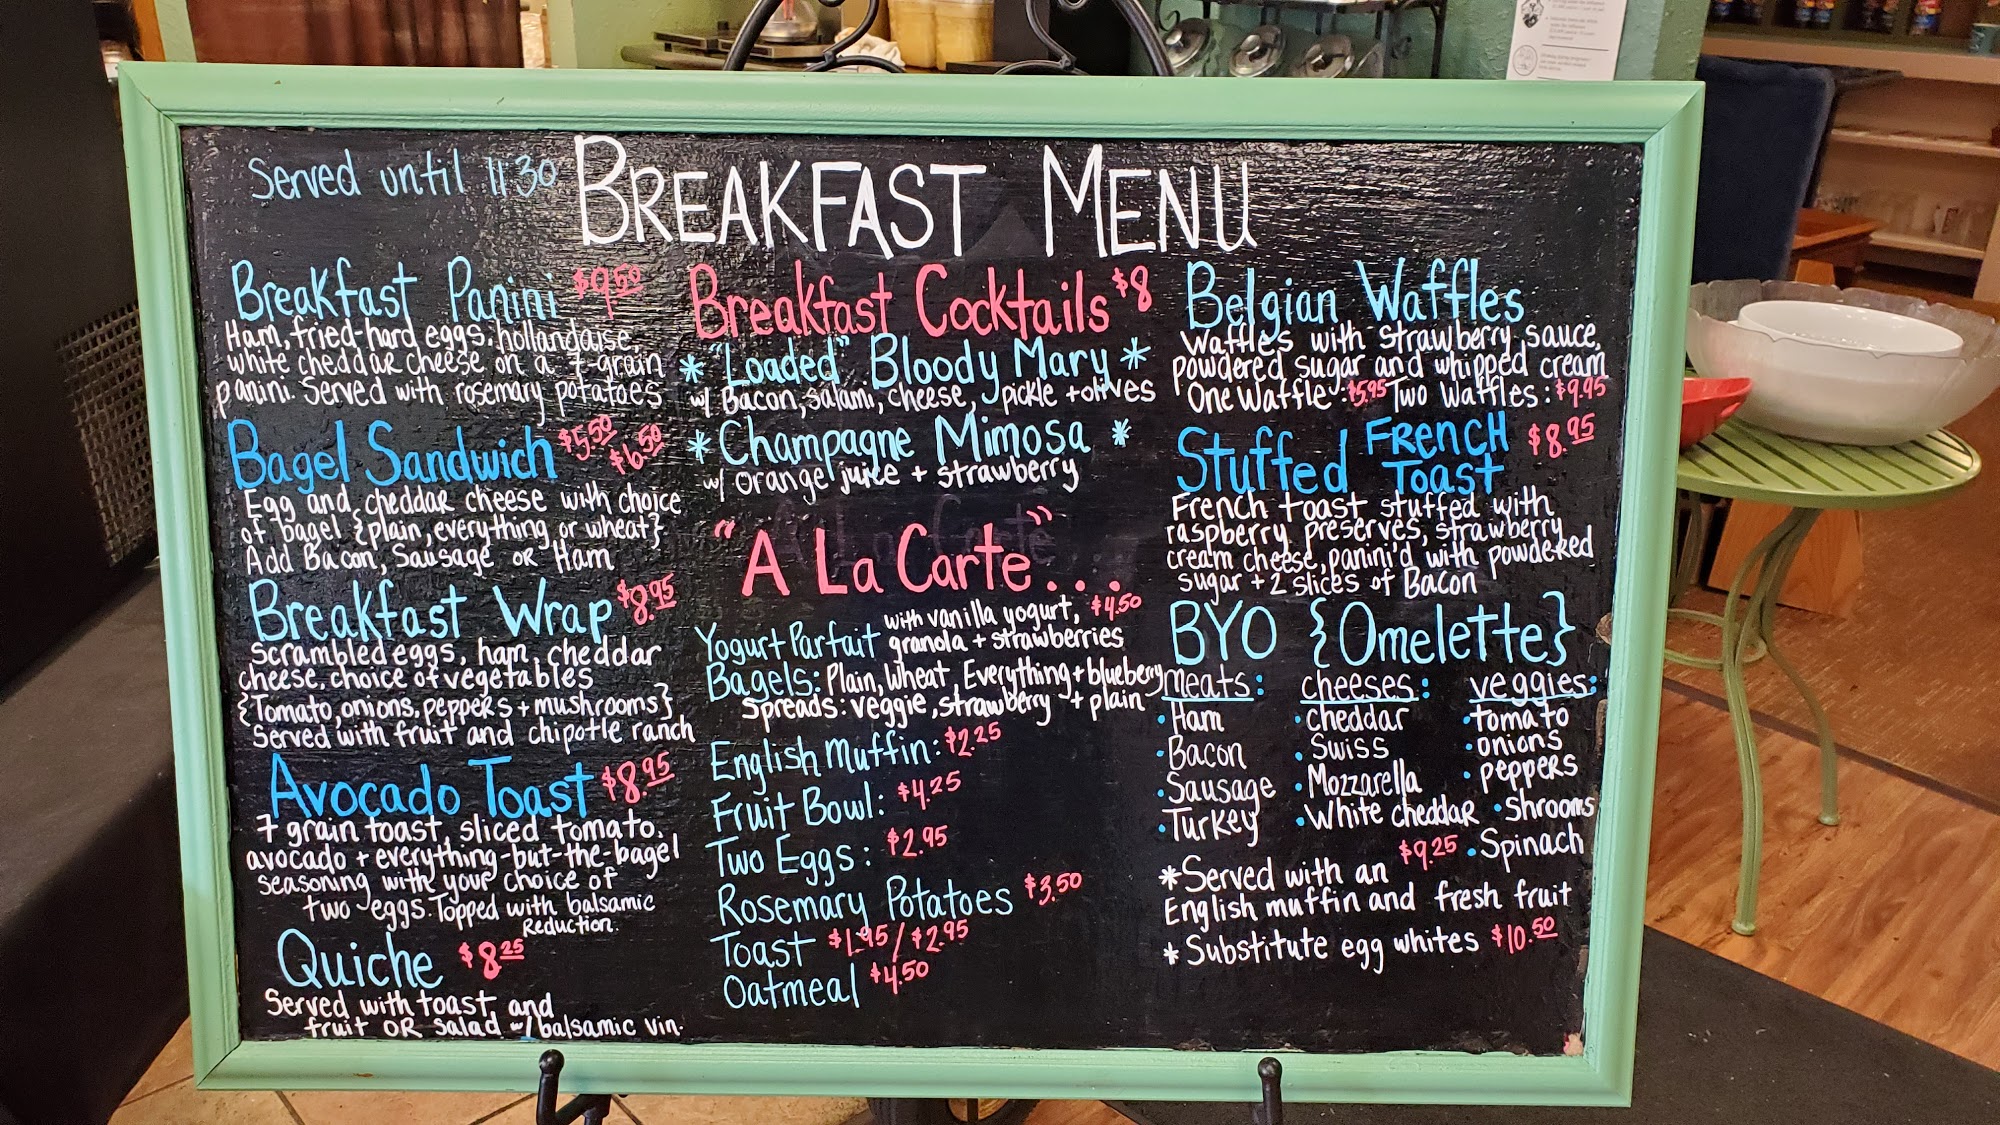 Served until 11:30
BREAKFAST MENU
Breakfast Panini $9.50
Ham, fried-hard eggs, hollandaise,
white cheddar cheese on a 7-grain
panini. Served with rosemary potatoes
Bagel Sandwich $5.50
$6.50
Egg and cheddar cheese with choice
of bagel {plain, everything, or wheat}
Add Bacon, Sausage or Ham
Breakfast Wrap $8.95
Scrambled eggs, ham, cheddar
cheese, choice of vegetables
{Tomato, onions, peppers + mushrooms}
Served with fruit and chipotle ranch
Avocado Toast $8.95
7 grain toast, sliced tomato,
avocado + everything-but-the-bagel
seasoning with your choice of
two eggs. Topped with balsamic
Reduction.
Quiche $8.25
Served with toast and
fruit OR salad w/ balsamic vin.
Breakfast Cocktails $8
* "Loaded" Bloody Mary *
w/ Bacon, salami, cheese, pickle + olives
* Champagne Mimosa *
w/ orange juice + strawberry
"A La Carte"...
Yogurt Parfait with vanilla yogurt, $4.50
granola + strawberries
Bagels: Plain, Wheat, Everything + blueberry
Spreads: veggie, strawberry + plain
English Muffin: $2.25
Fruit Bowl: $4.25
Two Eggs: $2.95
Rosemary Potatoes $3.50
Toast $1.95/$2.95
Oatmeal $4.50
Belgian Waffles
Waffles with strawberry sauce,
powdered sugar and whipped cream
One Waffle: $5.95 Two Waffles: $9.95
Stuffed French Toast $8.95
French toast stuffed with
raspberry preserves, strawberry
cream cheese, panini'd with powdered
sugar + 2 slices of Bacon
BYO {Omelette}
meats: cheeses: veggies:
• Ham • cheddar • tomato
• Bacon • Swiss • onions
• Sausage • Mozzarella • peppers
• Turkey • White cheddar • Shrooms
• Spinach
*Served with an $9.25
English muffin and fresh fruit
* Substitute egg whites $10.50